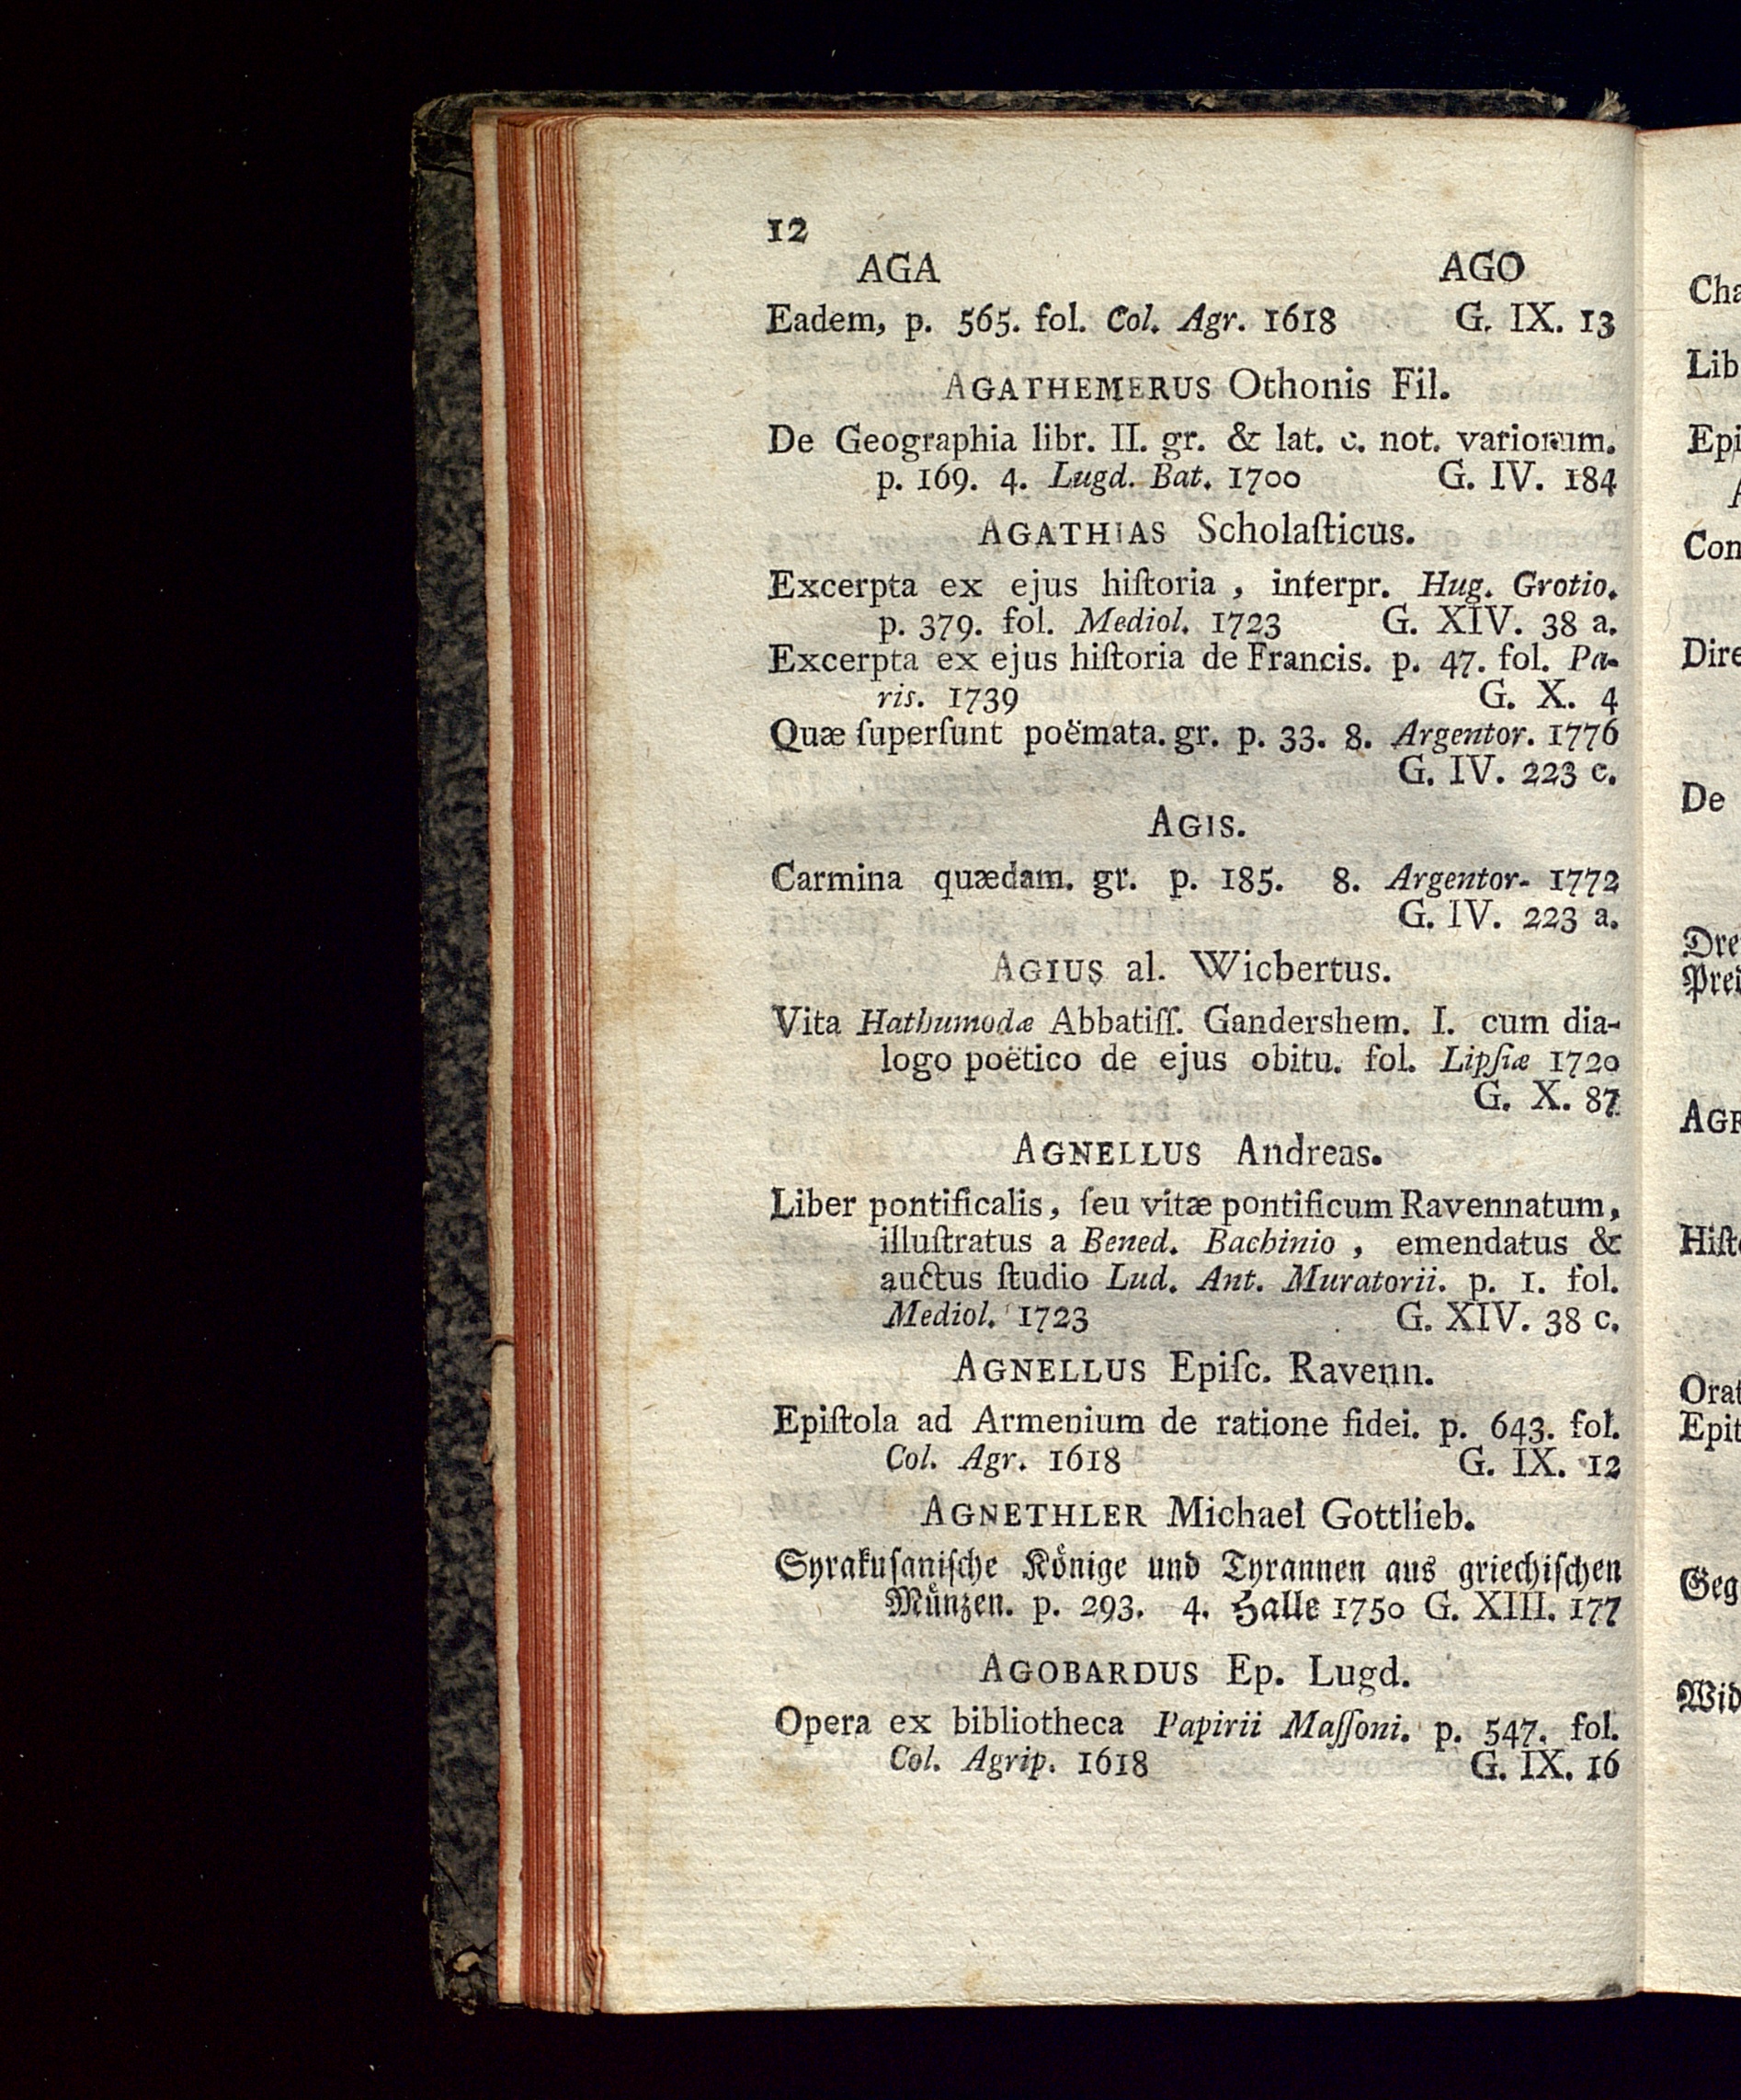 12
AGA AGO
Eadem, p. 565. fol. Col. Agr. 1618 G. IX. 13
AGATHEMERUS Othonis Fil.
De Geographia libr. II. gr. & lat. c. not. variorum.
p. 169. 4. Lugd. Bat. 1700 G. IV. 184
AGATHIAS Scholaſticus.
Excerpta ex ejus hiſtoria, interpr. Hug. Grotio.
p. 379. fol. Mediol. 1723 G. XIV. 38 a.
Excerpta ex ejus hiſtoria de Francis. p. 47. fol. Pa-
ris. 1739 G. X. 4
Quæ ſuperſunt poëmata. gr. p. 33. 8. Argentor. 1776
G. IV. 223 c.
AGIS.
Carmina quædam. gr. p. 185. 8. Argentor- 1772
G. IV. 223 a.
AGIUS al. Wicbertus.
Vita Hathumodæ Abbatiſſ. Gandershem. I. cum dia-
logo poëtico de ejus obitu. fol. Lipſiæ 1720
G. X. 87
AGNELLUS Andreas.
Liber pontificalis, ſeu vitæ pontificum Ravennatum,
illuſtratus a Bened. Bachinio, emendatus &
auctus ſtudio Lud. Ant. Muratorii. p. 1. fol.
Mediol. 1723 G. XIV. 38 c.
AGNELLUS Epiſc. Ravenn.
Epiſtola ad Armenium de ratione fidei. p. 643. fol.
Col. Agr. 1618 G. IX. 12
AGNETHLER Michael Gottlieb.
Syrakuſaniſche Könige und Tyrannen aus griechiſchen
Münzen. p. 293. 4. Halle 1750 G. XIII. 177
AGOBARDUS Ep. Lugd.
Opera ex bibliotheca Papirii Maſſoni. p. 547. fol.
Col. Agrip. 1618 G. IX. 16
Cha
Lib
Epi
Con
Dire
De
Dre
Prei
AGR
Hiſt
Orat
Epit
Geg
Wid